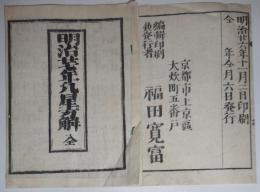 明治廿六年十一月三日印刷
仝 年 仝月六日発行
京都市上京區
大炊町五番戸
編輯印刷
兼発行者
福田寛富
明治廿七年九星略解 全